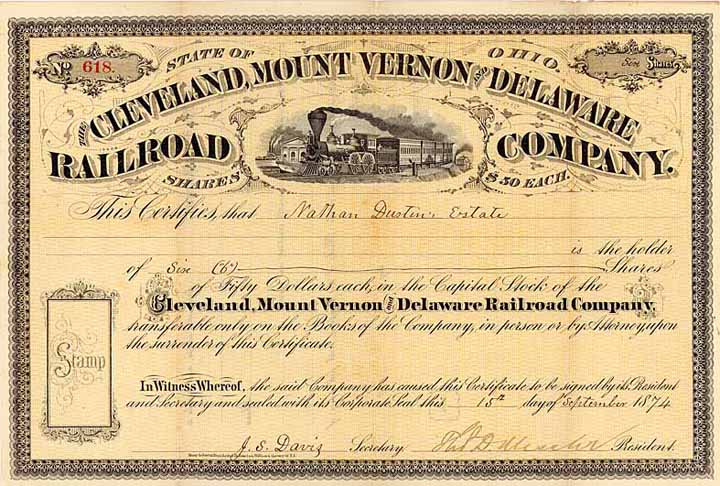 No 618.
STATE OF OHIO.
Six Shares
THE CLEVELAND, MOUNT VERNON AND DELAWARE
RAILROAD COMPANY.
SHARES $50 EACH.
This Certifies, that Nathan Dustin's Estate
is the holder
of Six (6) Shares
of Fifty Dollars each, in the Capital Stock of the
Cleveland, Mount Vernon and Delaware Railroad Company,
transferable only on the Books of the Company, in person or by Attorney, upon
the surrender of this Certificate.
Stamp
In Witness Whereof, the said Company has caused this Certificate to be signed by its President
and Secretary and sealed with its Corporate Seal this 15th day of September 1874
J. S. Davis Secretary. President.